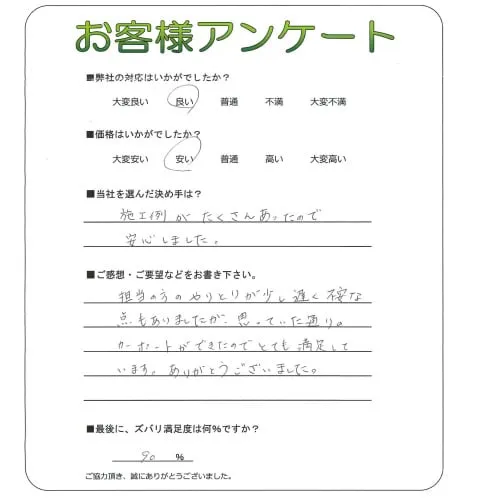 お客様アンケート
■弊社の対応はいかがでしたか？
大変良い 良い 普通 不満 大変不満
■価格はいかがでしたか？
大変安い 安い 普通 高い 大変高い
■当社を選んだ決め手は？
施工例がたくさんあったので
安心しました。
■ご感想・ご要望などをお書き下さい。
担当の方のやりとりが少し遅く不安な
点もありましたが、思っていた通り。
カーポートができたのでとても満足して
います。ありがとうございました。
■最後に、ズバリ満足度は何％ですか？
90 %
ご協力頂き、誠にありがとうございました。